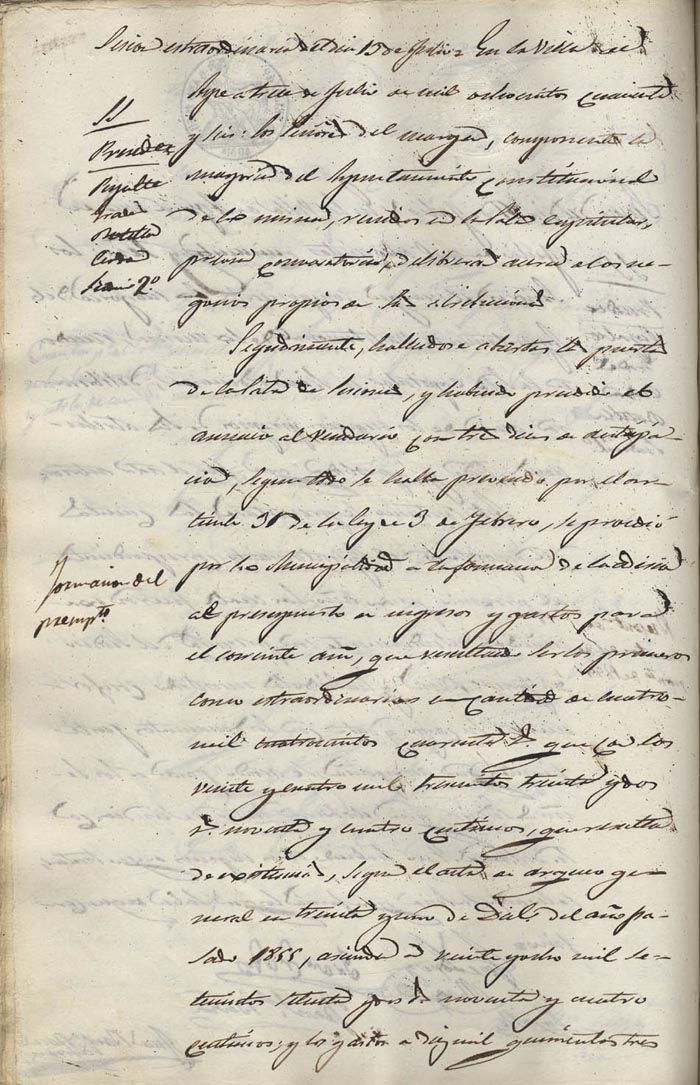 Sesion extraordinaria del dia 13 de Julio = En la Villa de
Aspe a trece de Julio de mil ochocientos cincuenta
SS
y seis: los Señores del margen, componente la
Presidte
mayoria del Ayuntamiento Constitucional
de la misma, reunidos en la Sala Capitular,
previa convocatoria, deliberar acerca de los ne-
gocios propios de sus atribuciones
Seguidamente, hallandose abiertas las puertas
de la Sala de Sesiones, y habiendo precedido el
anuncio al vecindario con tres dias de anticipa-
cion, segun todo se halla prevenido por el ar-
ticulo de la ley de 3 de Febrero, se procedió
por la Municipalidad a la formacion de la adicion
formacion del
presupto
al presupuesto de ingresos y gastos para
el corriente año, que resultando ser los primeros
como extraordinarios en cantidad de cuatro
mil cuatrocientos cuarenta r. que con los
veinte y cuatro mil trescientos treinta y dos
r. noventa y cuatro centimos, que resulta
de existencia, segun el acta de arqueo ge-
neral en treinta y uno de Dicbe. del año pa-
sado 1855, asciende a veinte y ocho mil se-
tecientos setenta y dos r. noventa y cuatro
centimos; y los gastos a diez mil quinientos tres